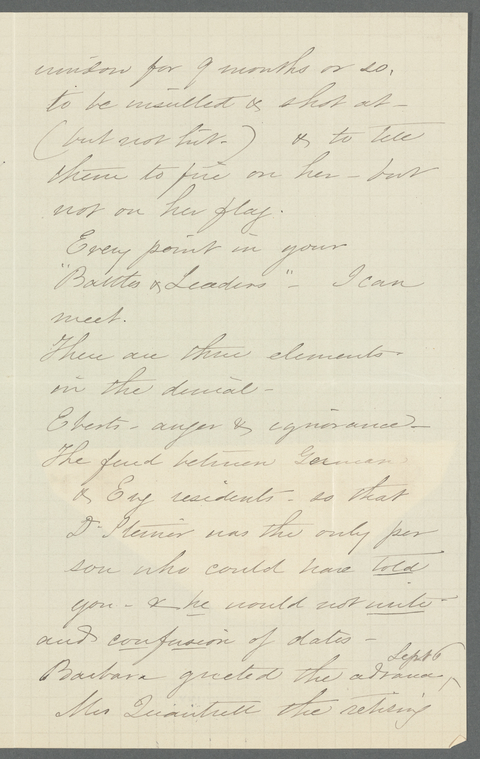 unison for 9 months or so.
to be insulted & shot at -
(but not hit.) & to tell
them to fire on her - but
not on her flag.
Every point in your
"Battles & Leaders" - I can
meet.
There are three elements
in the denial -
Eberts - anger & ignorance -
The feud between German
& Eng residents - so that
Dr Steiner was the only per
son who could have told
you - & he would not write
and confusion of dates -
Sept 6
Barbara greeted the advance,
Mrs Quantrell the retiring